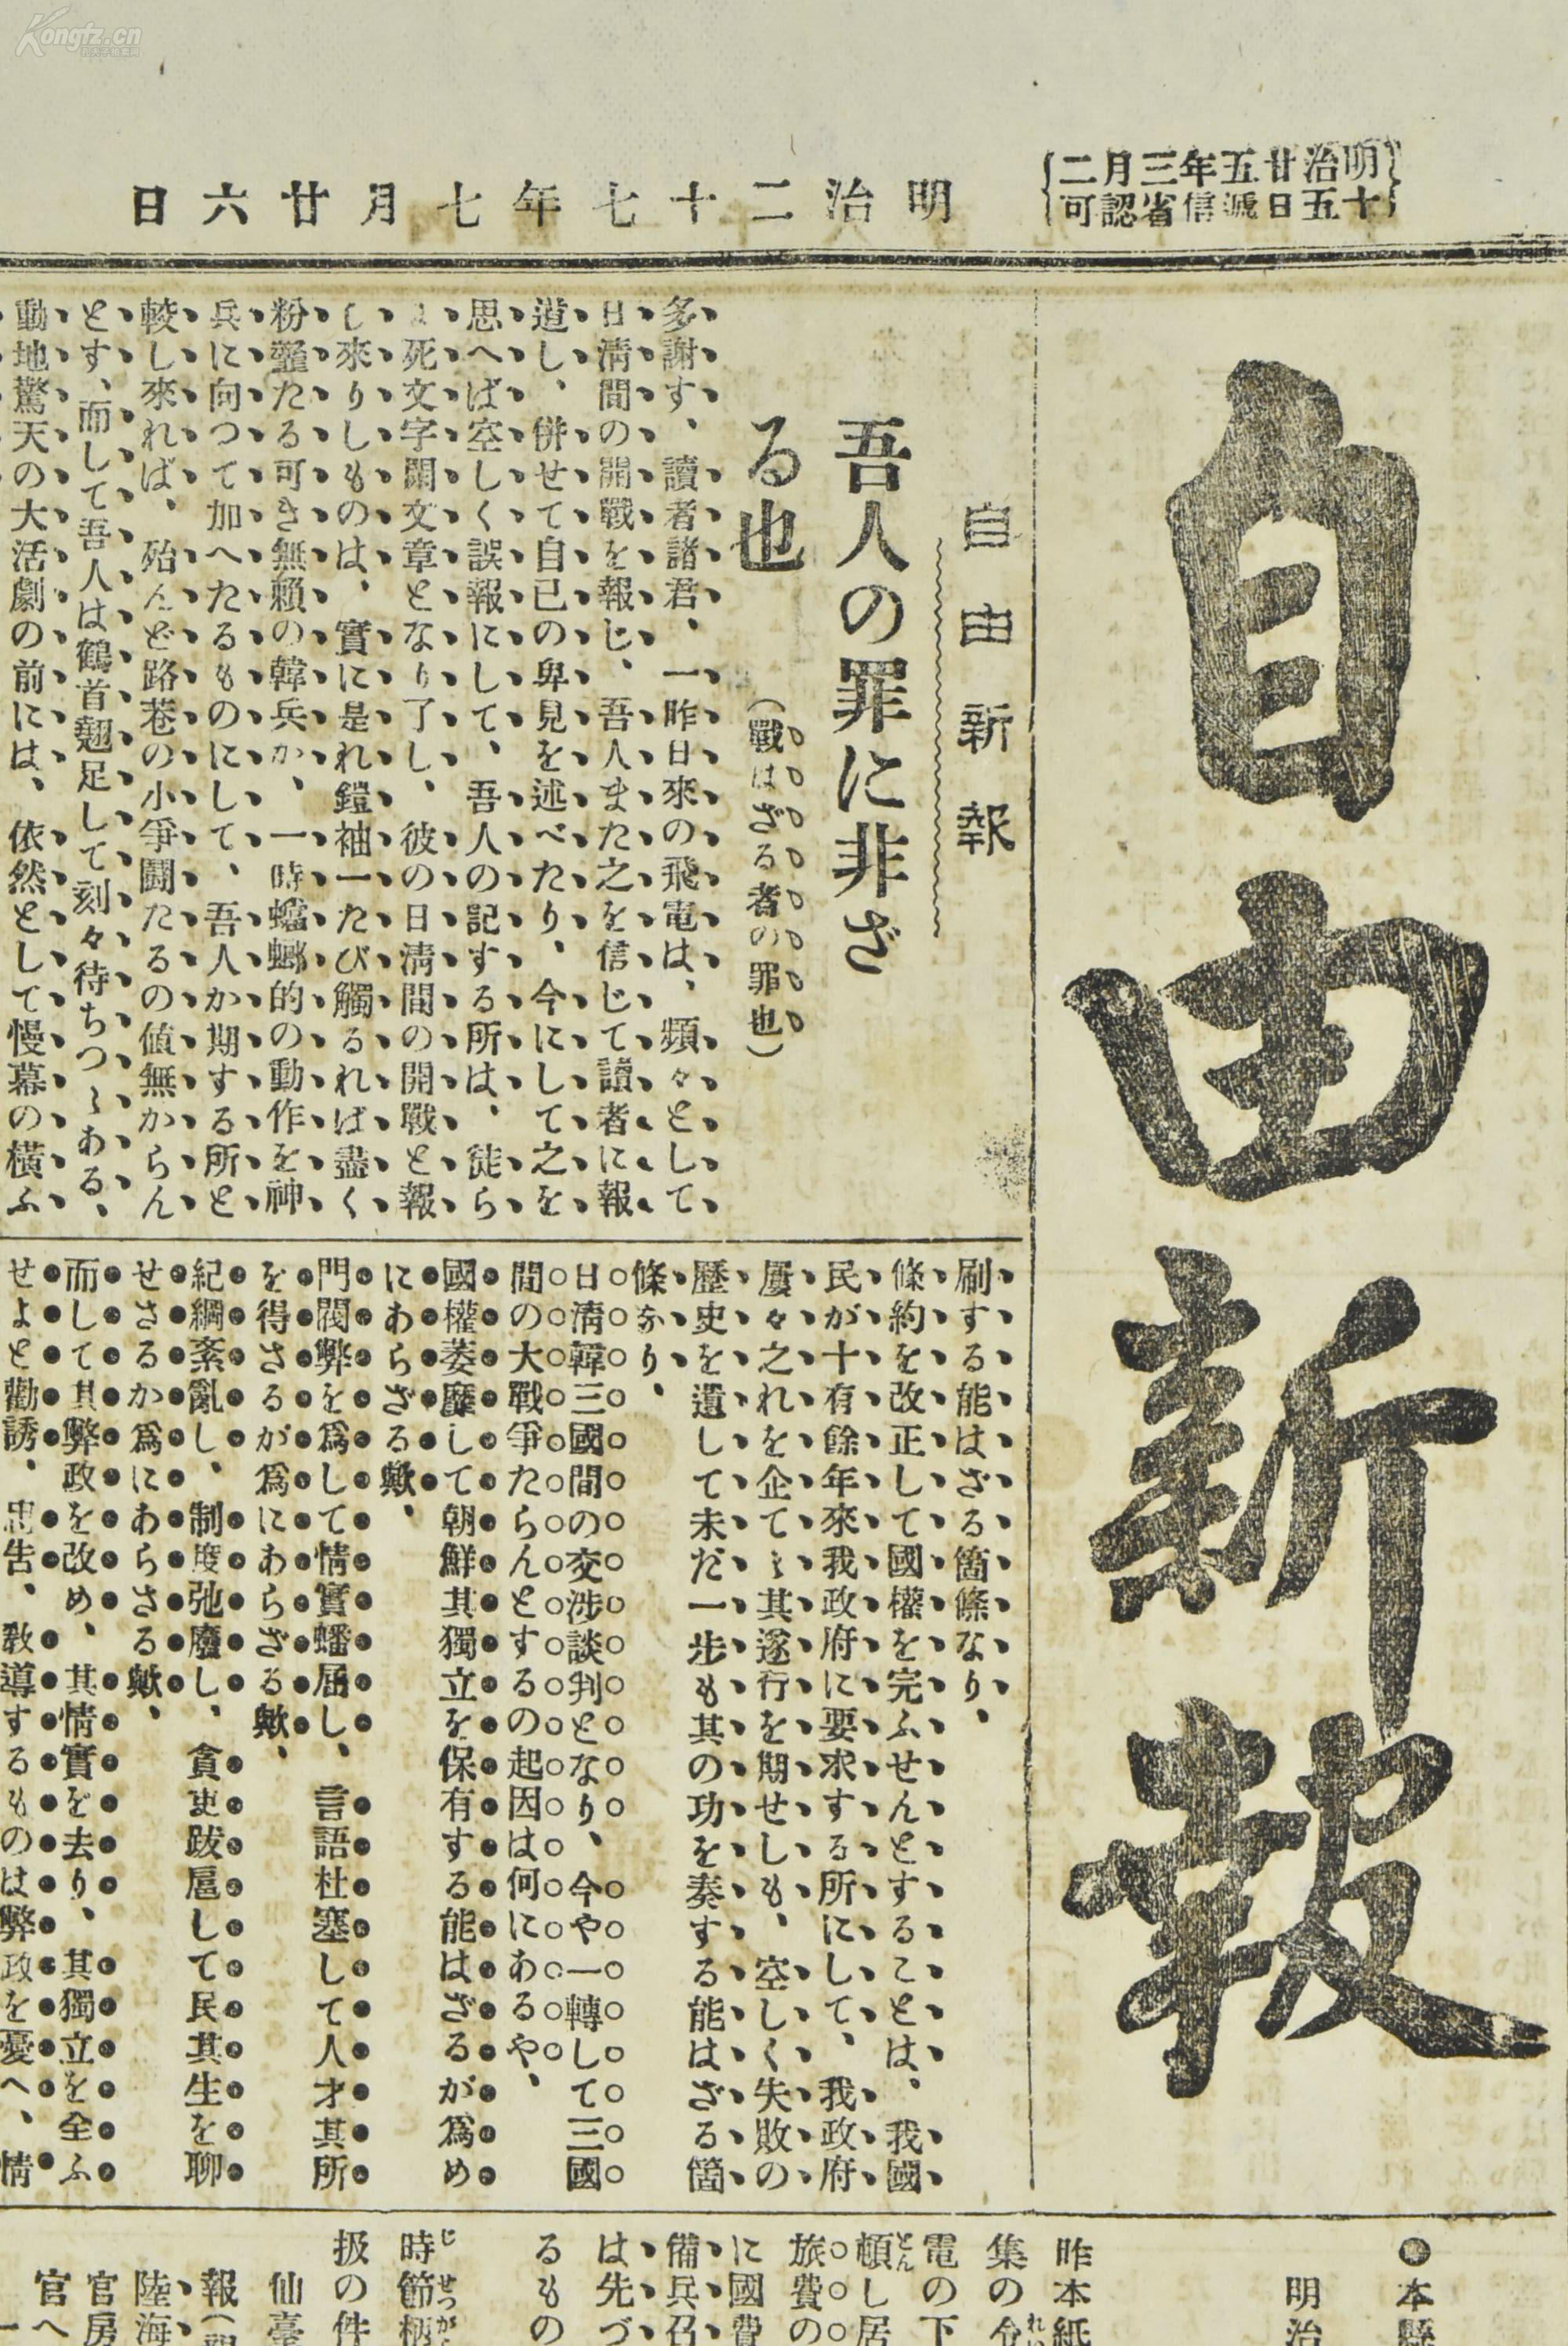 Kongfz.cn
明治廿五年三月二
十五日遞信省認可
明治二十七年七月廿六日
自由新報
自由新報
吾人の罪に非ざ
る也
(戰はざる者の罪也)
多謝す、讀者諸君、一昨日來の飛電は、頻々として
日淸間の開戰を報じ、吾人また之を信じて讀者に報
道し、併せて自已の卑見を述べたり、今にして之を
思へば空しく誤報にして、吾人の記する所は、徒ら
死文字閑文章となり了し、彼の日淸間の開戰と報
し來りしものは、實に是れ鎧袖一たび觸るれば盡く
粉韲たる可き無賴の韓兵か、一時蟷螂的の動作を神
兵に向つて加へたるものにして、吾人か期する所と
較し來れば、殆んど路巷の小爭鬪たるの値無からん
とす、而して吾人は鶴首翹足して刻々待ちつゝある、
動地驚天の大活劇の前には、依然として慢幕の橫ふ
刷する能はざる箇條なり、
條約を改正して國權を完ふせんとすることは、我國
民が十有餘年來我政府に要求する所にして、我政府
屢々之れを企てゝ其遂行を期せしも、空しく失敗の
歷史を遺して未だ一步も其の功を奏する能はざる箇
條なり、
日淸韓三國間の交涉談判となり、今や一轉して三國
間の大戰爭たらんとするの起因は何にあるや、
國權萎靡して朝鮮其獨立を保有する能はざるが爲め
にあらざる歟、
門閥弊を爲して情實蟠屈し、言語杜塞して人才其所
を得さるが爲にあらざる歟、
紀綱紊亂し、制度弛廢し、貪吏跋扈して民其生を聊
せさるか爲にあらさる歟、
而して其弊政を改め、其情實を去り、其獨立を全ふ
せよと勸誘、忠吿、敎導するものは弊政を憂へ、情
●本縣
明治
昨本紙
集の令
電の下
頓し居
旅費の
に國費
備兵召
は先づ
るもの
時節柄
扱の件
仙臺
報(
陸海
官房
官へ